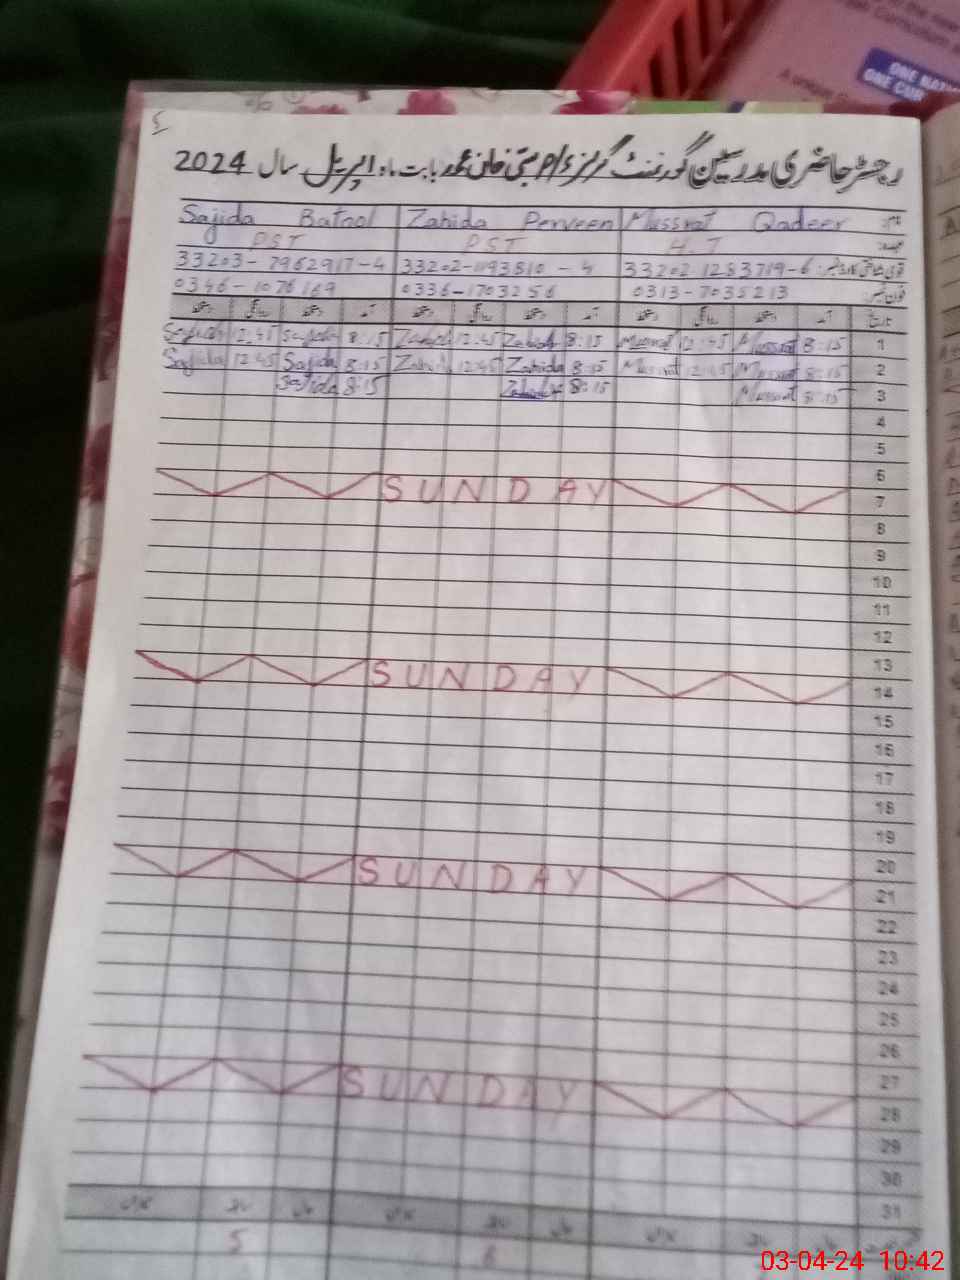 رجسٹر حاضری مدرسین گورنمنٹ گرلز بابت ماہ اپریل سال 2024
Sajida Batool Zahida Perveen Mussrat Qadeer نام
PST PST H.T عہدہ
33203-7962917-4 33202-1193810-4 33202 1283719-6
0346-1076149 0336-1703256 0313-7035213 فون نمبر
دستخط روانگی دستخط آمد دستخط روانگی دستخط آمد دستخط روانگی دستخط آمد تاریخ
Sajida 12:45 Sajida 8:15 Zahida 12:45 Zahida 8:15 Mussrat 12:45 Mussrat 8:15 1
Sajida 12:45 Sajida 8:15 Zahida 12:45 Zahida 8:15 Mussrat 12:45 Mussrat 8:15 2
Sajida 8:15 Zahida 8:15 Mussrat 8:15 3
4
5
6
SUNDAY 7
8
9
10
11
12
13
SUNDAY 14
15
16
17
18
19
20
SUNDAY 21
22
23
24
25
26
27
SUNDAY 28
29
30
31
5
03-04-24 10:42
ONE NATION